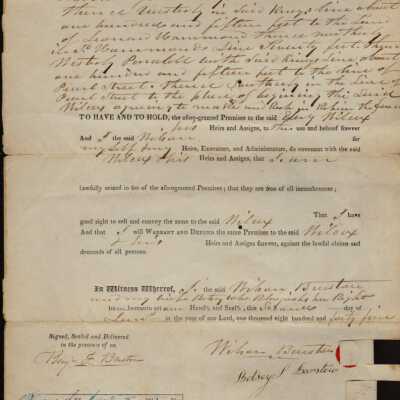 thence Westerly in said Kings line about
one hundred and fifteen feet to the land
of Leonard Hammond thence northerly
in sd. Hammonds Line Seventy feet thence
Westerly Parralell with said Kings Line about
one hundred and fifteen feet to the line of
Pearl Street thence Southerly in line of
Pearl Street to the place of begining the said
Wilcox agreeing to make and keep in Repair the fence
TO HAVE AND TO HOLD, the afore-granted Premises to the said Wilcox
his Heirs and Assigns, to his use and behoof forever
And I the said Benson for
myself my Heirs, Executors, and Administrators, do covenant with the said
Wilcox & his Heirs and Assigns, that I am
lawfully seized in fee of the afore-granted Premises; that they are free of all incumbrances;
That I have
good right to sell and convey the same to the said Wilcox
And that I will WARRANT AND DEFEND the same Premises to the said Wilcox
& his Heirs and Assigns forever, against the lawful claims and
demands of all persons.
In Witness Whereof, I the said
and my wife Betsy who Relinquishes her Right
have hereunto set our Hands and Seals, this day of
in the year of our Lord, one thousand eight hundred and forty five
Signed, Sealed and Delivered
in the presence of us
Betsey